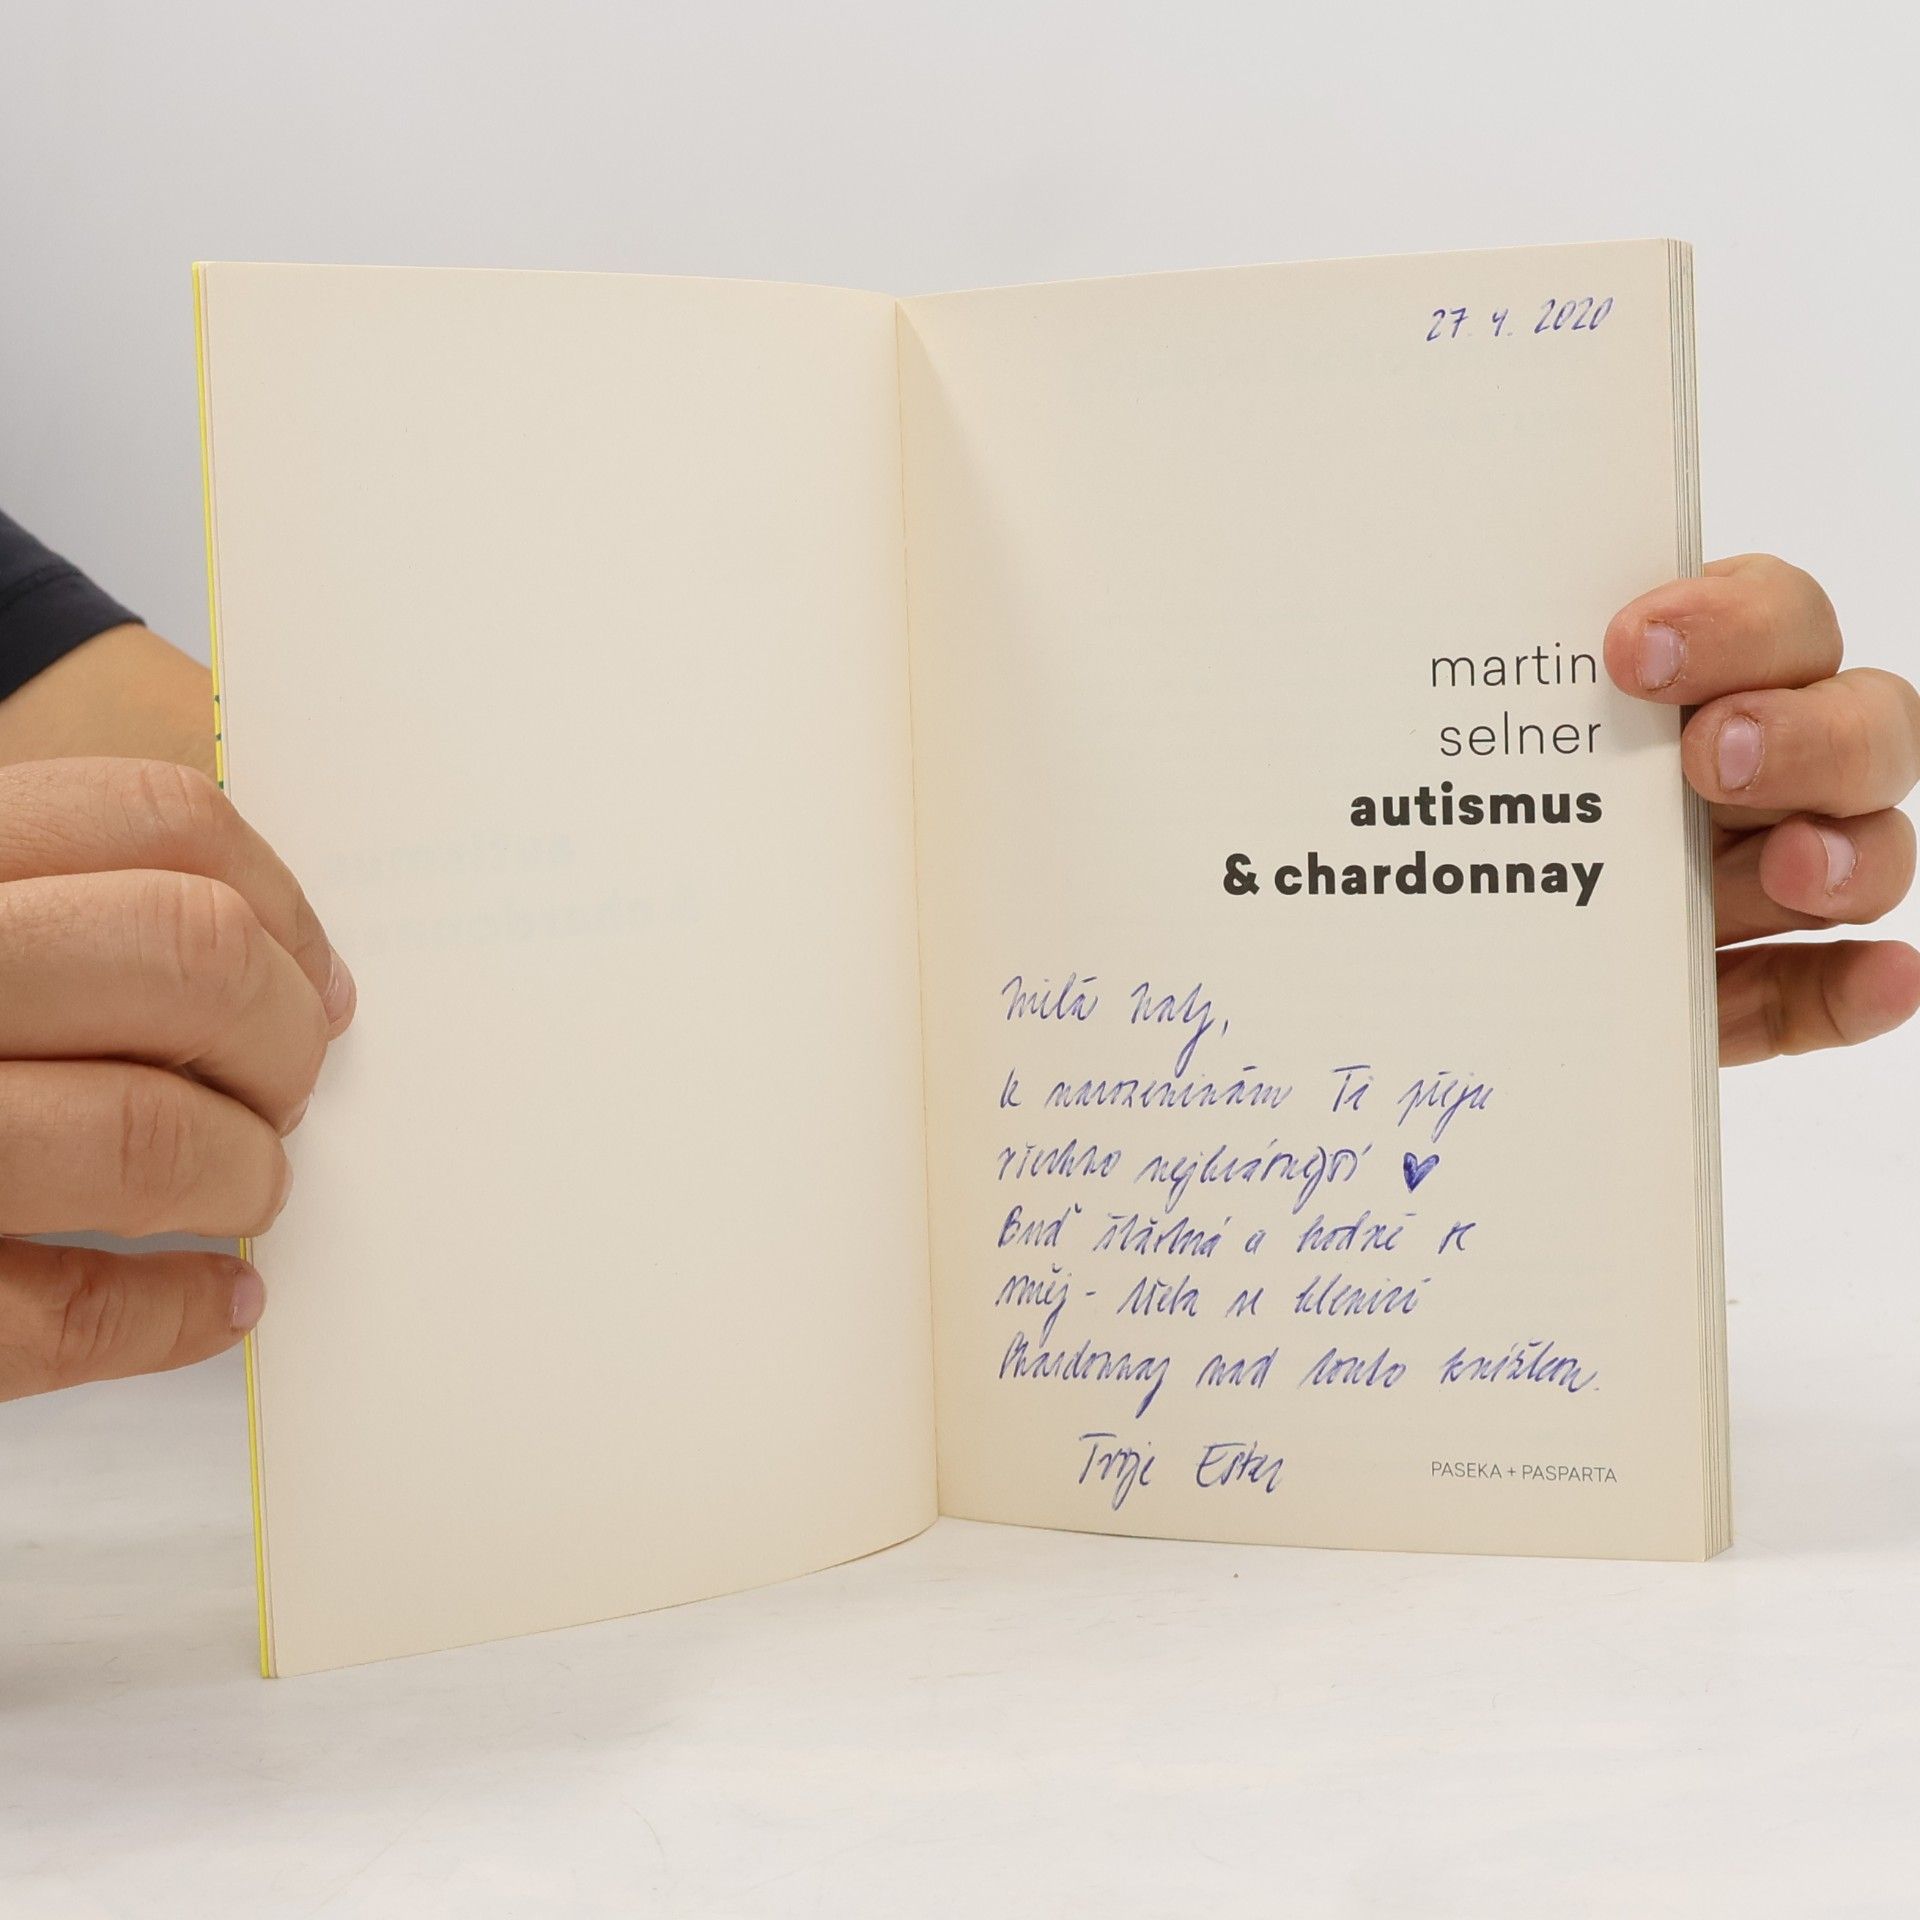 27. 4. 2020
martin
selner
autismus
& chardonnay
Milá Naty,
k narozeninám Ti přeju
všechno nejkrásnější ♥
Buď šťastná a hodně se
směj - třeba se sklenicí
Chardonnay nad touto knížkou.
Tvoje Ester
PASEKA + PASPARTA